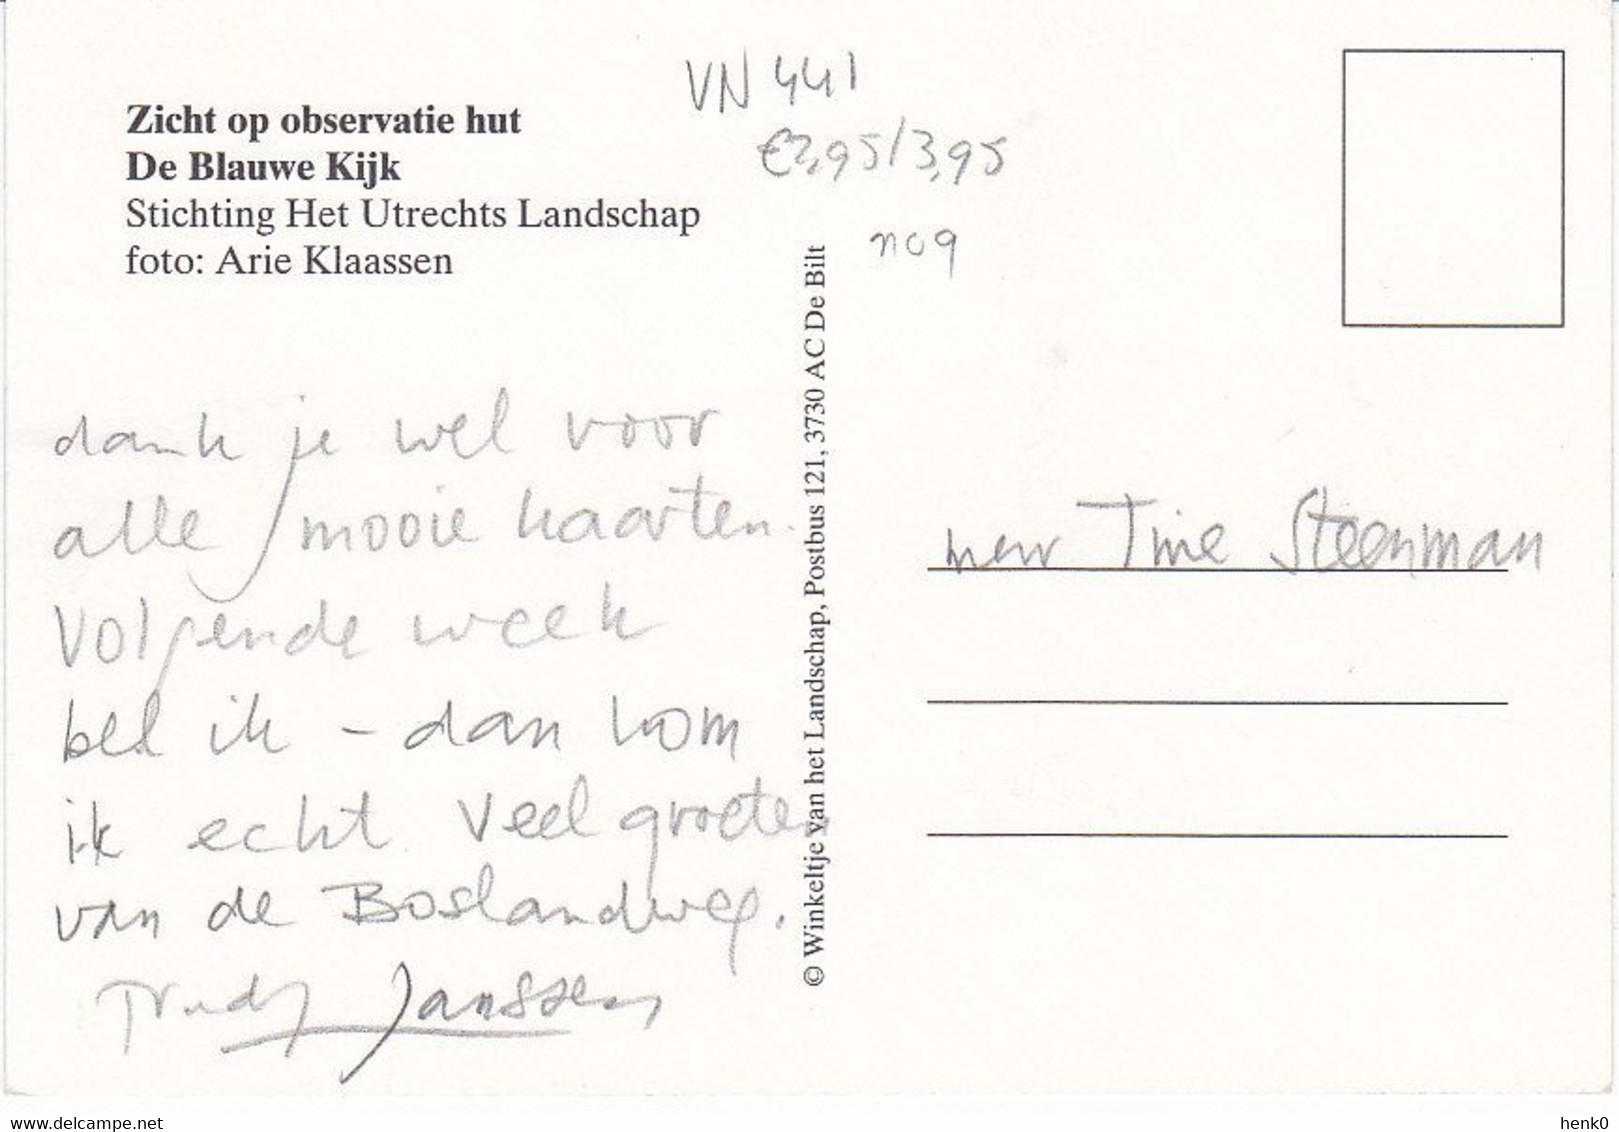 VN 441
€2,95/3,95
no9
Zicht op observatie hut
De Blauwe Kijk
Stichting Het Utrechts Landschap
foto: Arie Klaassen
dank je wel voor
alle mooie kaarten.
Volgende week
bel ik - dan kom
ik echt. Veel groeten
van de Boslandweg.
Trudy Janssen
© Winkeltje van het Landschap, Postbus 121, 3730 AC De Bilt
mevr Tine Steenman
www.delcampe.net
henk0